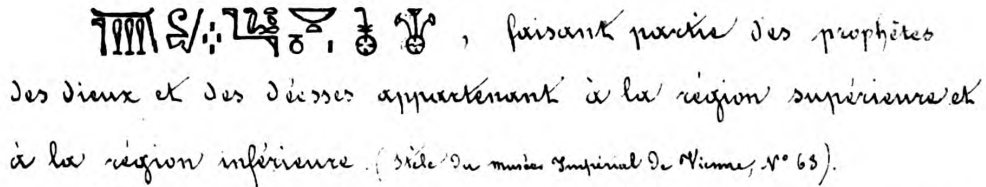 , faisant partie des prophètes
des dieux et des déesses appartenant à la région supérieure et
à la région inférieure. (Stèle du musée Impérial de Vienne, N° 63).